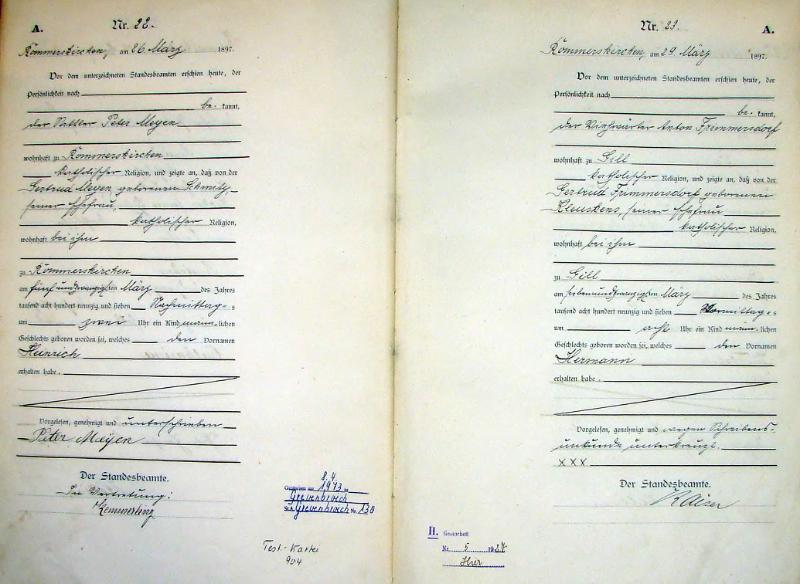 A.
Nr. 22.
Rommerskirchen, am 26 März 1897.
Vor dem unterzeichneten Standesbeamten erschien heute, der
Persönlichkeit nach
be- kannt,
der Sattler Peter Meyen
wohnhaft zu Rommerskirchen
katholischer Religion, und zeigte an, daß von der
Gertrud Meyen geborenen Schmitz,
seiner Ehefrau,
katholischer Religion,
wohnhaft bei ihm
zu Rommerskirchen
am fünf und zwanzigsten März des Jahres
tausend acht hundert neunzig und sieben Nachmittags
um zwei Uhr ein Kind männlichen
Geschlechts geboren worden sei, welches den Vornamen
Heinrich
erhalten habe.
Vorgelesen, genehmigt und unterschrieben
Peter Meyen
Der Standesbeamte.
In Vertretung:
8.4
1973
Grevenbroich
Grevenbroich Nr. 130
Test-Kartei
904
Nr. 23.
A.
Rommerskirchen, am 29 März 1897.
Vor dem unterzeichneten Standesbeamten erschien heute, der
Persönlichkeit nach
be- kannt,
der Anton Frimmersdorf
wohnhaft zu Gill
katholischer Religion, und zeigte an, daß von der
Gertrud Frimmersdorf geborenen
seiner Ehefrau
katholischer Religion,
wohnhaft bei ihm
zu Gill
am sieben und zwanzigsten März des Jahres
tausend acht hundert neunzig und sieben Vormittags
um acht Uhr ein Kind männlichen
Geschlechts geboren worden sei, welches den Vornamen
Hermann
erhalten habe.
Vorgelesen, genehmigt und wegen Schreibens-
unkunde unterkreuzt.
XXX
Der Standesbeamte.
Kaiser
H.
Nr. 5 1924